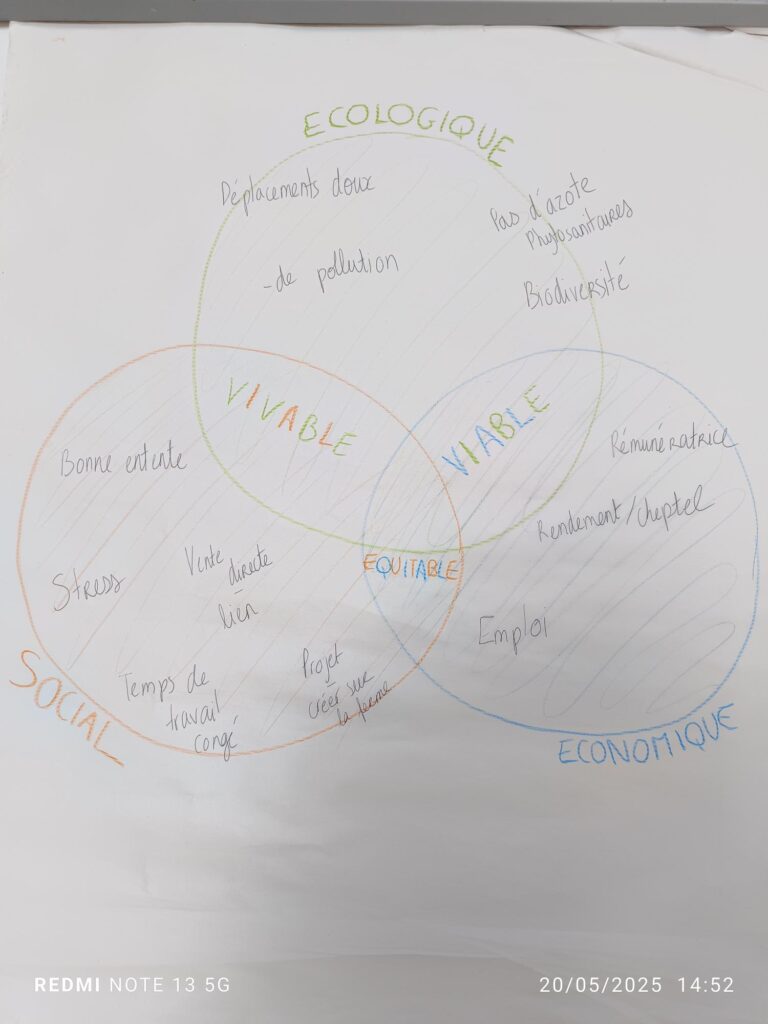 ECOLOGIQUE
Déplacements doux
Pas d'azote
Phytosanitaires
- de pollution
Biodiversité
VIVABLE
VIABLE
Bonne entente
Rémunératrice
Rendement/cheptel
EQUITABLE
Stress
Vente
directe
lien
Emploi
Temps de
travail
congé
Projet
créer sur
la ferme
SOCIAL
ECONOMIQUE
REDMI NOTE 13 5G
20/05/2025 14:52